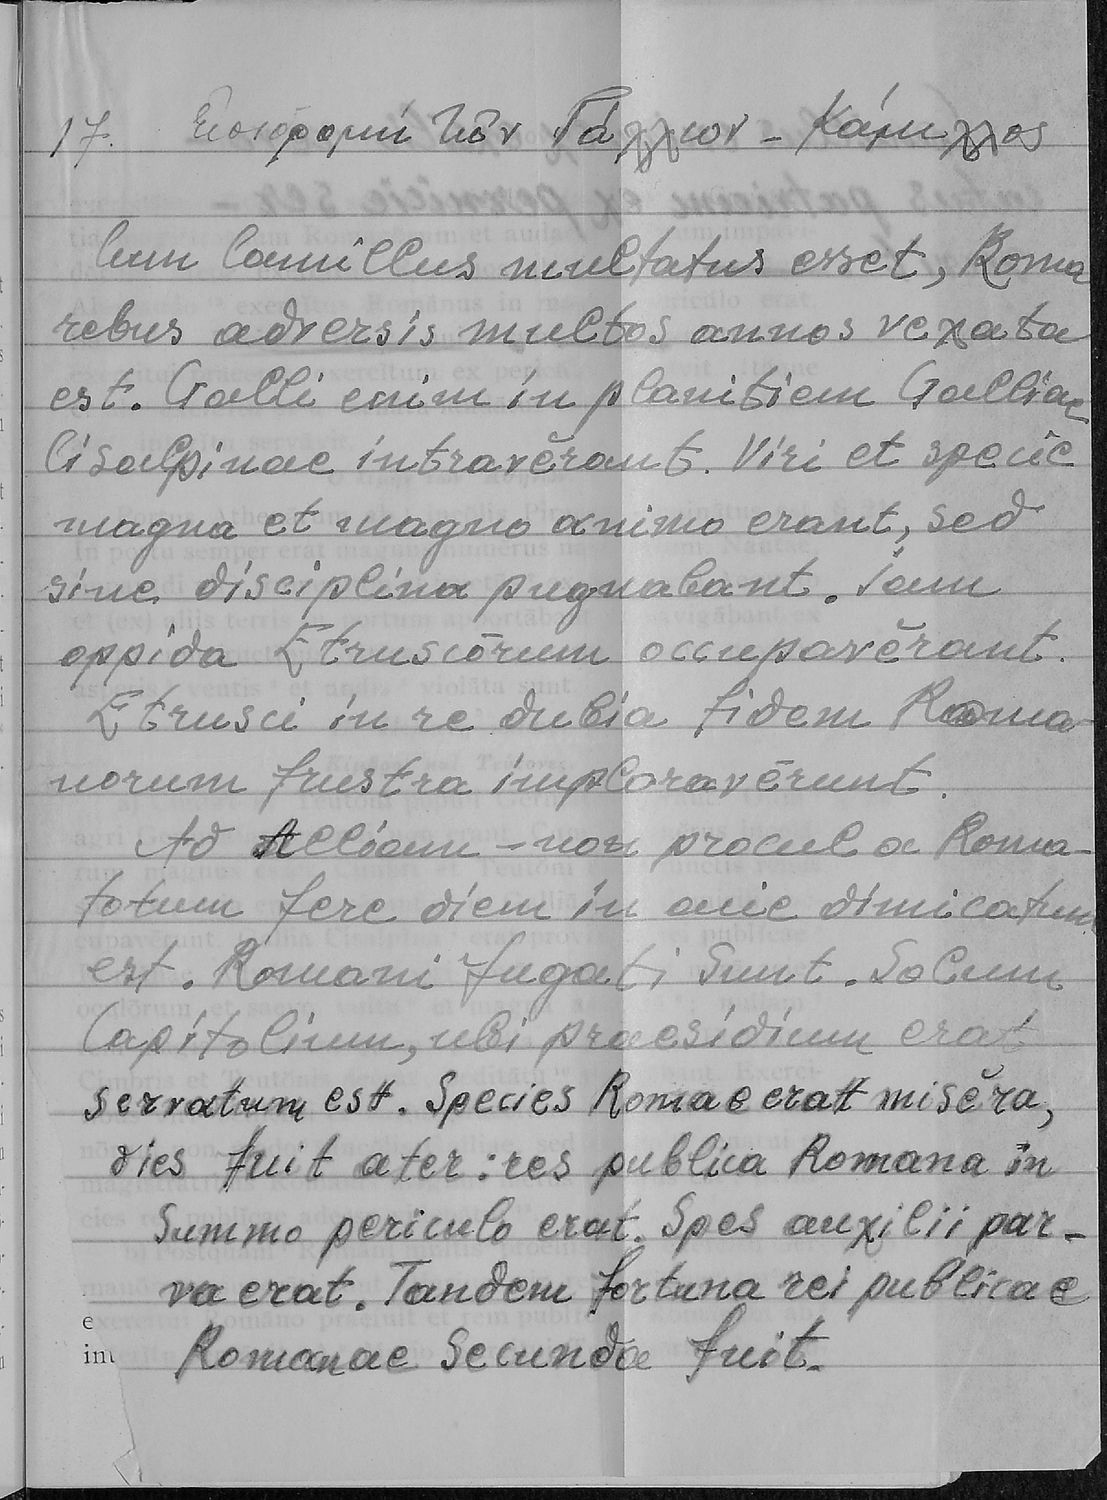 17. Εἰσδρομή τῶν Γάλλων - Κάμιλλος
Cum Camillus multatus esset, Roma
rebus adversis multos annos vexata
est. Galli enim in planitiem Galliae
Cisalpinae intravĕrant. Viri et specie
magna et magno animo erant, sed
sine disciplina pugnabant. Iam
oppida Etruscōrum occupavĕrant.
Etrusci in re dubia fidem Roma-
norum frustra imploravērunt.
Ad Alliam - non procul a Roma -
totum fere diem in acie dimicatum
est. Romani fugati sunt. Solum
Capitolium, ubi praesidium erat
servatum est. Species Romae erat misĕra,
dies fuit ater : res publica Romana in
summo periculo erat. Spes auxilii par-
va erat. Tandem fortuna rei publicae
Romanae secunda fuit.